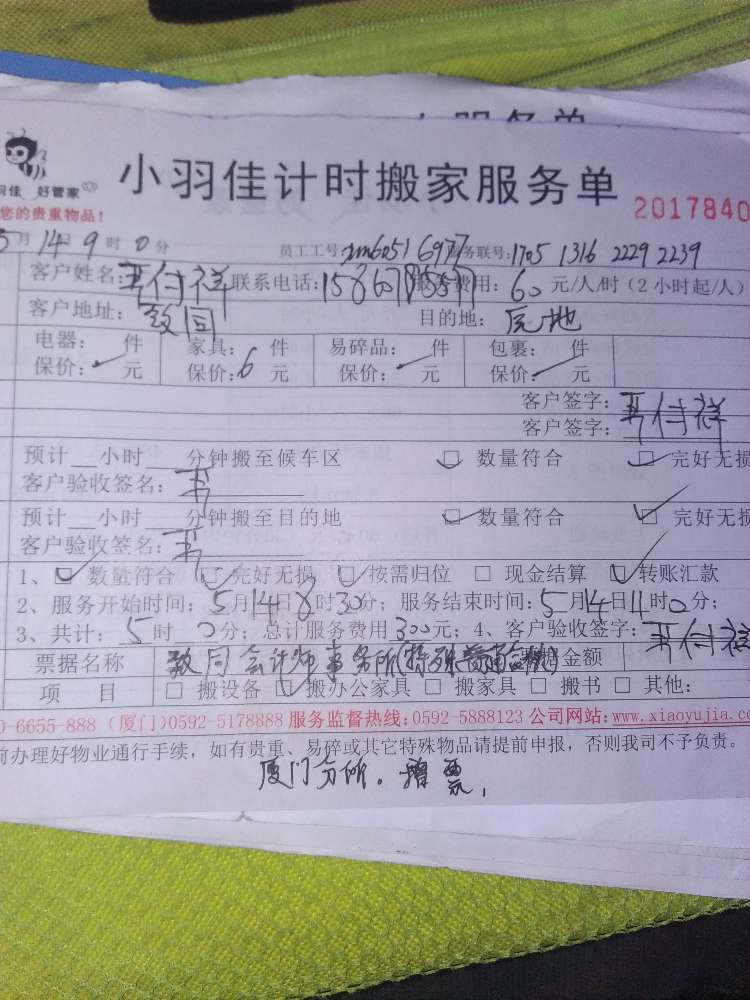 服务单
小羽佳计时搬家服务单
羽佳 好管家
您的贵重物品！
2017840
5月14日9时0分 员工工号: 服务联号:1705 1316 2229 2239
客户姓名: 付祥 联系电话: 服务费用:60元/人/时(2小时起/人)
客户地址: 致同 目的地: 原地
电器: 件 家具: 件 易碎品: 件 包裹: 件
保价: 元 保价:6元 保价: 元 保价: 元
客户签字: 付祥
客户签字:
预计__小时___分钟搬至候车区 数量符合 完好无损
客户验收签名:
预计__小时___分钟搬至目的地 数量符合 完好无损
客户验收签名:
1、数量符合 完好无损 按需归位 □ 现金结算 转账汇款
2、服务开始时间:5月14日8时30分;服务结束时间:5月14日11时0分;
3、共计:5时0分;总计服务费用300元;4、客户验收签字: 付祥
票据名称 致同会计师事务所(特殊普通合伙) 金额
项 目 □ 搬设备 搬办公家具 □ 搬家具 □ 搬书 □ 其他:
0-6655-888 (厦门)0592-5178888 服务监督热线:0592-5888123 公司网站:www.xiaoyujia.co
前办理好物业通行手续，如有贵重、易碎或其它特殊物品请提前申报，否则我司不予负责。
厦门分所。增票,